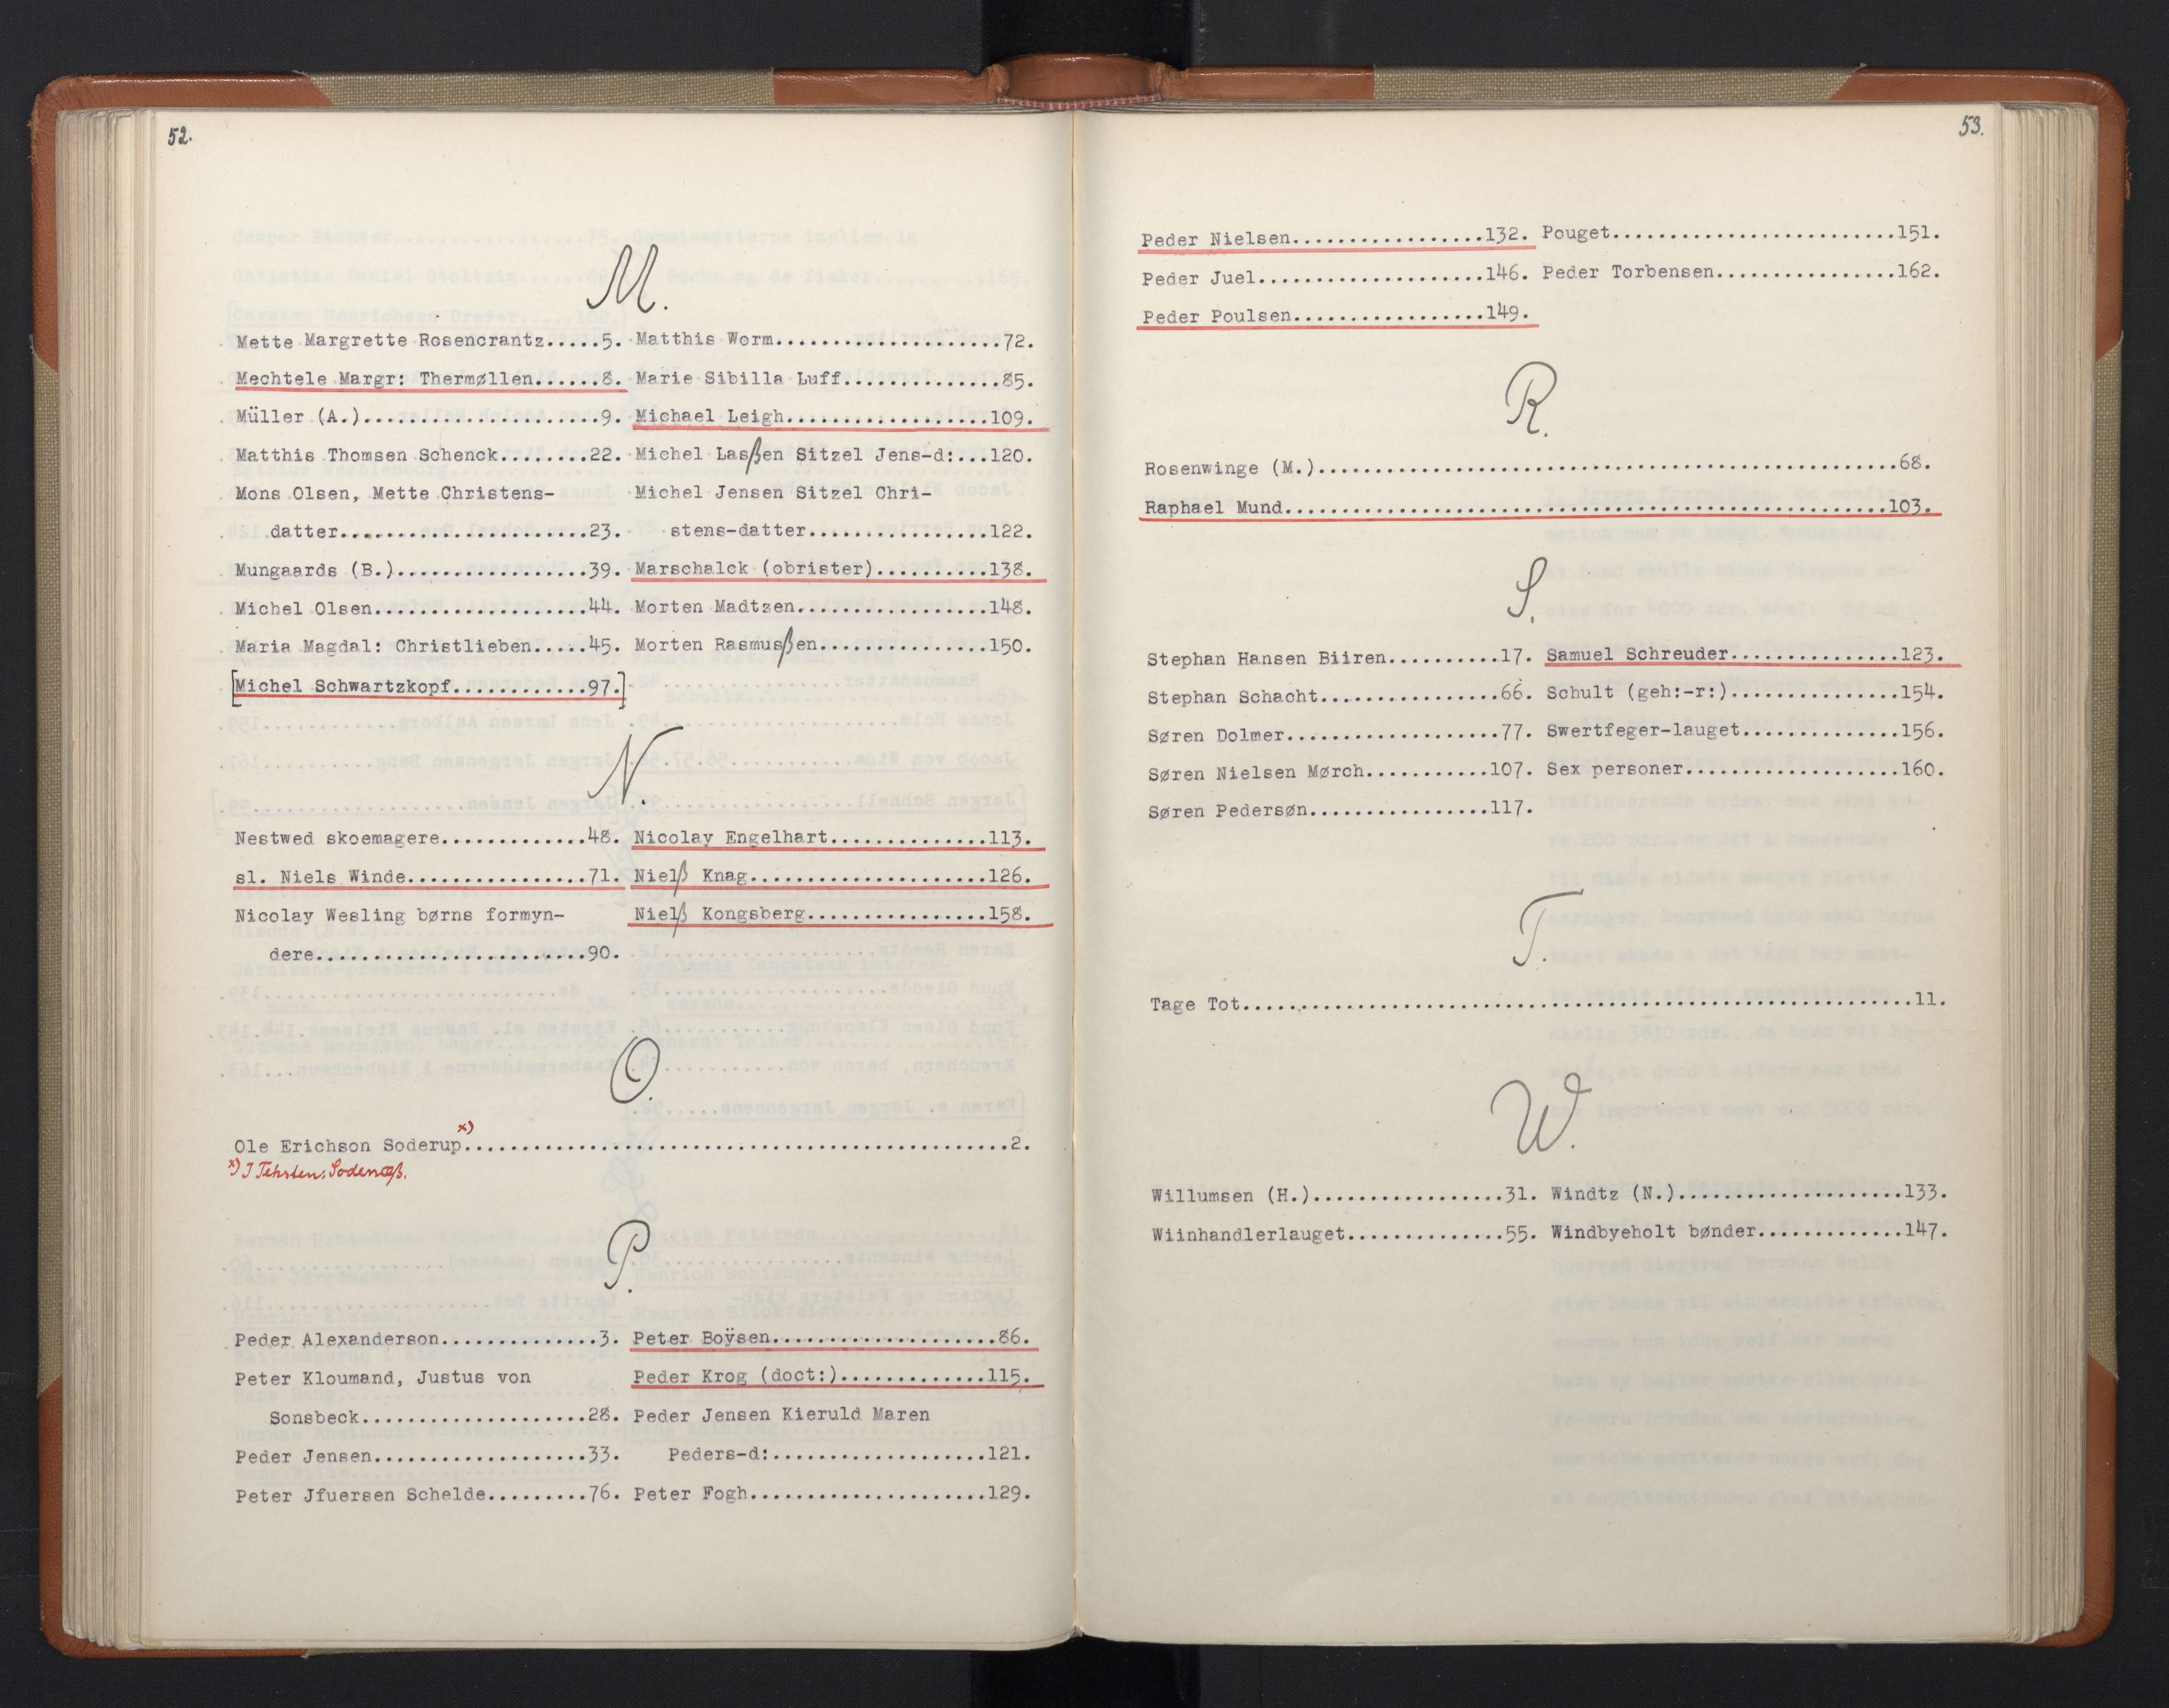 52.
M.
Mette Margrette Rosencrantz.....5.
Mechtele Margr: Thermøllen......8.
Müller (A.).....................9.
Matthis Thomsen Schenck........22.
Mons Olsen, Mette Christens-
datter......................23.
Mungaards (B.).................39.
Michel Olsen...................44.
Maria Magdal: Christlieben.....45.
[Michel Schwartzkopf............97.]
Matthis Worm....................72.
Marie Sibilla Luff..............85.
Michael Leigh..................109.
Michel Lasßen Sitzel Jens-d:...120.
Michel Jensen Sitzel Chri-
stens-datter................122.
Marschalck (obrister)..........138.
Morten Madtzen.................148.
Morten Rasmusßen...............150.
N.
Nestwed skoemagere.............48.
sl. Niels Winde................71.
Nicolay Wesling børns formyn-
dere........................90.
Nicolay Engelhart..............113.
Nielß Knag.....................126.
Nielß Kongsberg................158.
O.
Ole Erichson Soderup x)................................................2.
x) I Teksten: Sodenæß.
P.
Peder Alexanderson..............3.
Peter Kloumand, Justus von
Sonsbeck....................28.
Peder Jensen...................33.
Peter Jfuersen Schelde.........76.
Peter Boÿsen....................86.
Peder Krog (doct:).............115.
Peder Jensen Kieruld Maren
Peders-d:...................121.
Peter Fogh.....................129.
53.
Peder Nielsen.................132.
Peder Juel....................146.
Peder Poulsen.................149.
Pouget.........................151.
Peder Torbensen................162.
R.
Rosenwinge (M.)...................................................68.
Raphael Mund.....................................................103.
S.
Stephan Hansen Biiren..........17.
Stephan Schacht................66.
Søren Dolmer...................77.
Søren Nielsen Mørch...........107.
Søren Pedersøn................117.
Samuel Schreuder...............123.
Schult (geh:-r:)...............154.
Swertfeger-lauget..............156.
Sex personer...................160.
T.
Tage Tot...........................................................11.
W.
Willumsen (H.).................31.
Wiinhandlerlauget..............55.
Windtz (N.)....................133.
Windbyeholt bønder.............147.